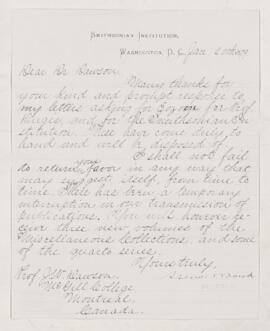 SMITHSONIAN INSTITUTION,
WASHINGTON, D. C. Jan
Dear Dr Dawson.
Many thanks for
your kind and prompt response to
my letters asking for Eozoon for Prof
and for the Smithsonian In-
stitution. These have come duly to
hand and will be disposed of.
I shall not fail
to return your favor in any way that
may suggest itself, from time to
time. There has been a temporary
interruption in our transmission of
publications. You will however re-
ceive three new volumes of the
Miscellaneous Collections, and some
of the quarto series.
Yours truly,
Prof J. W. Dawson.
McGill College,
Montreal,
Canada.